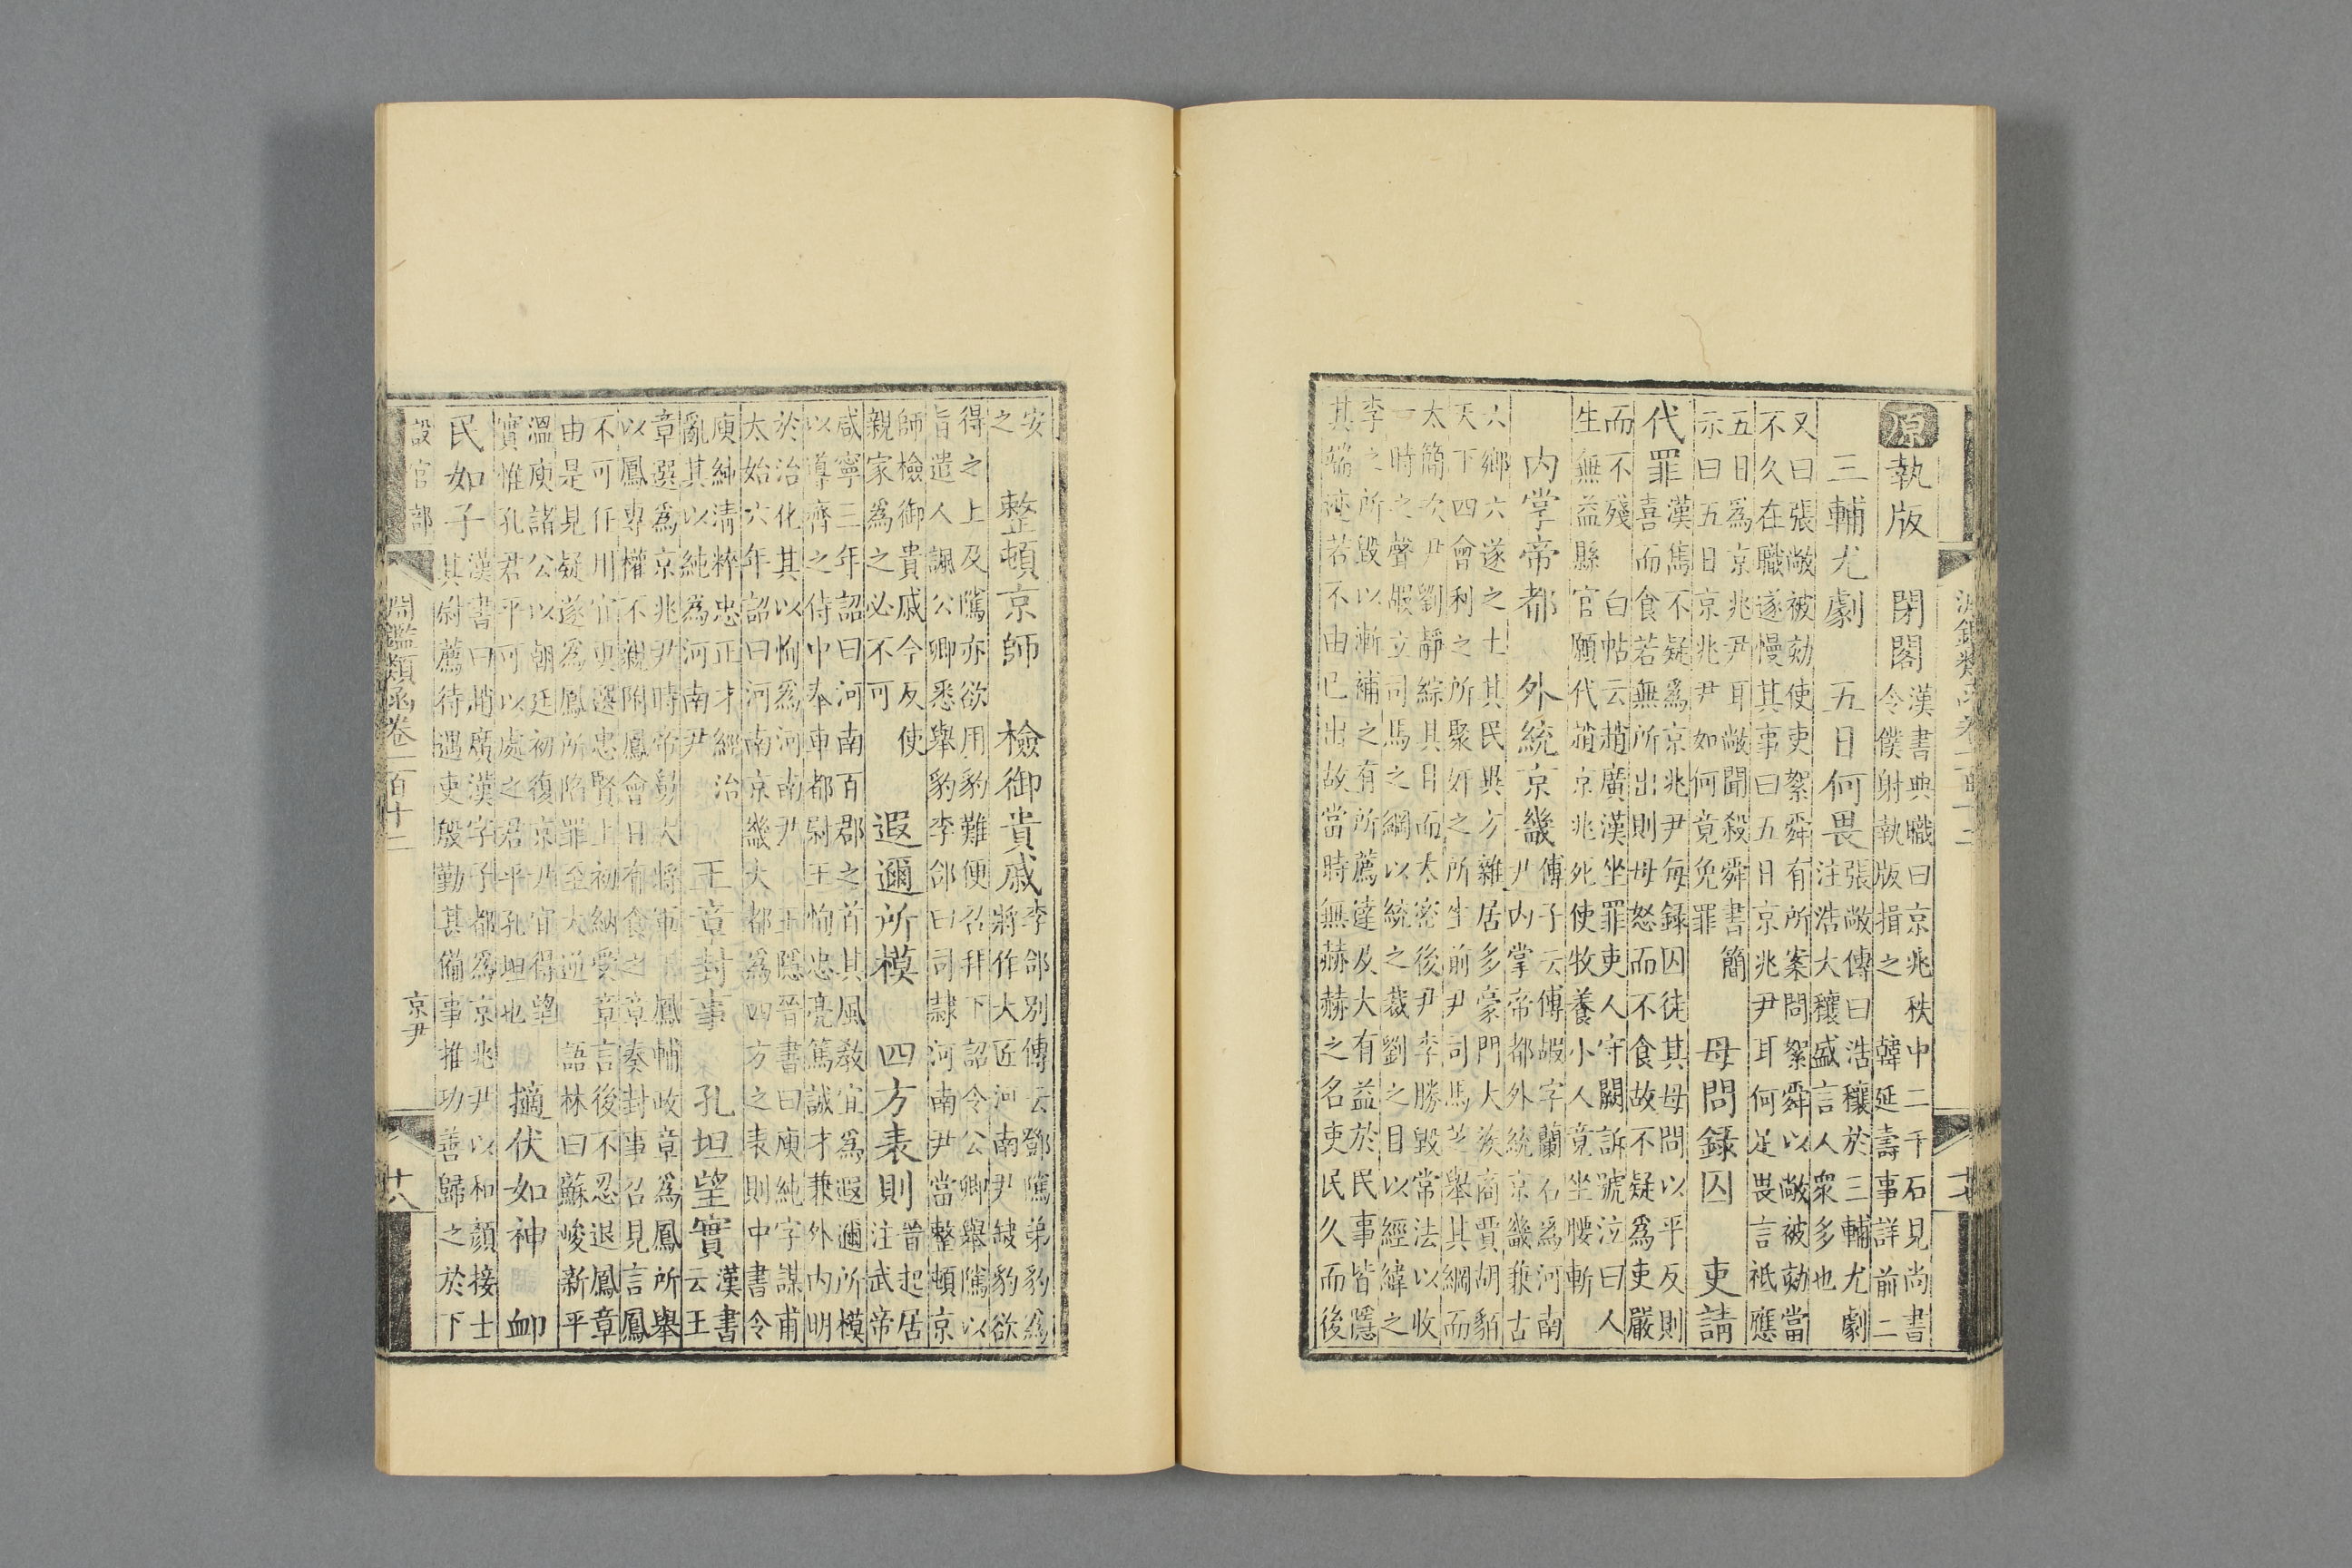 原執版 閉閣 漢書典職曰京兆秩中二千石見尚書
令僕射執版揖之 韓延壽事詳前二
三輔尤劇 五日何畏 張敞傳曰浩穰於三輔尤劇
注浩大穰盛言人衆多也
又曰張敞被劾使吏絮舜有所案問絮舜以敞被劾當
不久在職遂慢其事曰五日京兆尹耳何足畏言祇應
五日爲京兆尹耳敞聞殺舜書簡
示曰五日京兆尹如何竟免罪 母問錄囚 吏請
代罪 漢雋不疑爲京兆尹每錄囚徒其母問以平反則
喜而食若無所出則母怒而不食故不疑爲吏嚴
而不殘 白帖云趙廣漢坐罪吏人守闕訴號泣曰人
生無益縣官願代趙京兆死使牧養小人竟坐腰斬
内掌帝都 外統京畿 傅子云傅嘏字蘭石爲河南
尹内掌帝都外統京畿兼古
六鄉六遂之士其民異方雜居多豪門大族商賈胡貊
天下四會利之所聚奸之所生前尹司馬芝舉其綱而
太簡次尹劉靜綜其目而太密後尹李勝毀常法以收
一時之聲嘏立司馬之綱以統之裁劉之目以經緯之
李之所毀以漸補之有所薦達及大有益於民事皆隱
其端迹若不由己出故當時無赫赫之名吏民久而後
安之 整頓京師 檢御貴戚 李郃別傳云鄧隲弟豹爲
將作大匠河南尹缺豹欲
得之上及隲亦欲用豹難便召拜下詔令公卿舉隲以
旨遣人諷公卿悉舉豹李郃曰司隸河南尹當整頓京
師檢御貴戚今反使
親家爲之必不可 遐邇所模 四方表則 晉起居
注武帝
咸寧三年詔曰河南百郡之首其風教宜爲遐邇所模
以導齊之侍中奉車都尉王恂忠亮篤誠才兼外内明
於治化其以恂爲河南尹 王隱晉書曰庾純字謀甫
太始六年詔曰河南京畿大都爲四方之表則中書令
庾純清粹忠正才經治
亂其以純爲河南尹 王章封事 孔坦望實 漢書
云王
章選爲京兆尹時帝舅大將軍王鳳輔政章爲鳳所舉
以鳳專權不親附鳳會日有食之章奏封事召見言鳳
不可任用宜更選忠賢上初納受章言後不忍退鳳章
由是見疑遂爲鳳所陷罪至大逆 語林曰蘇峻新平
溫庾諸公以朝廷初復京尹宜得望
實惟孔君平可以處之君平孔坦也 摘伏如神 卹
民如子 漢書曰趙廣漢字子都爲京兆尹以和顏接士
其尉薦待遇吏殷勤甚備事推功善歸之於下
設官部
淵鑑類函卷一百十二 京尹 十八